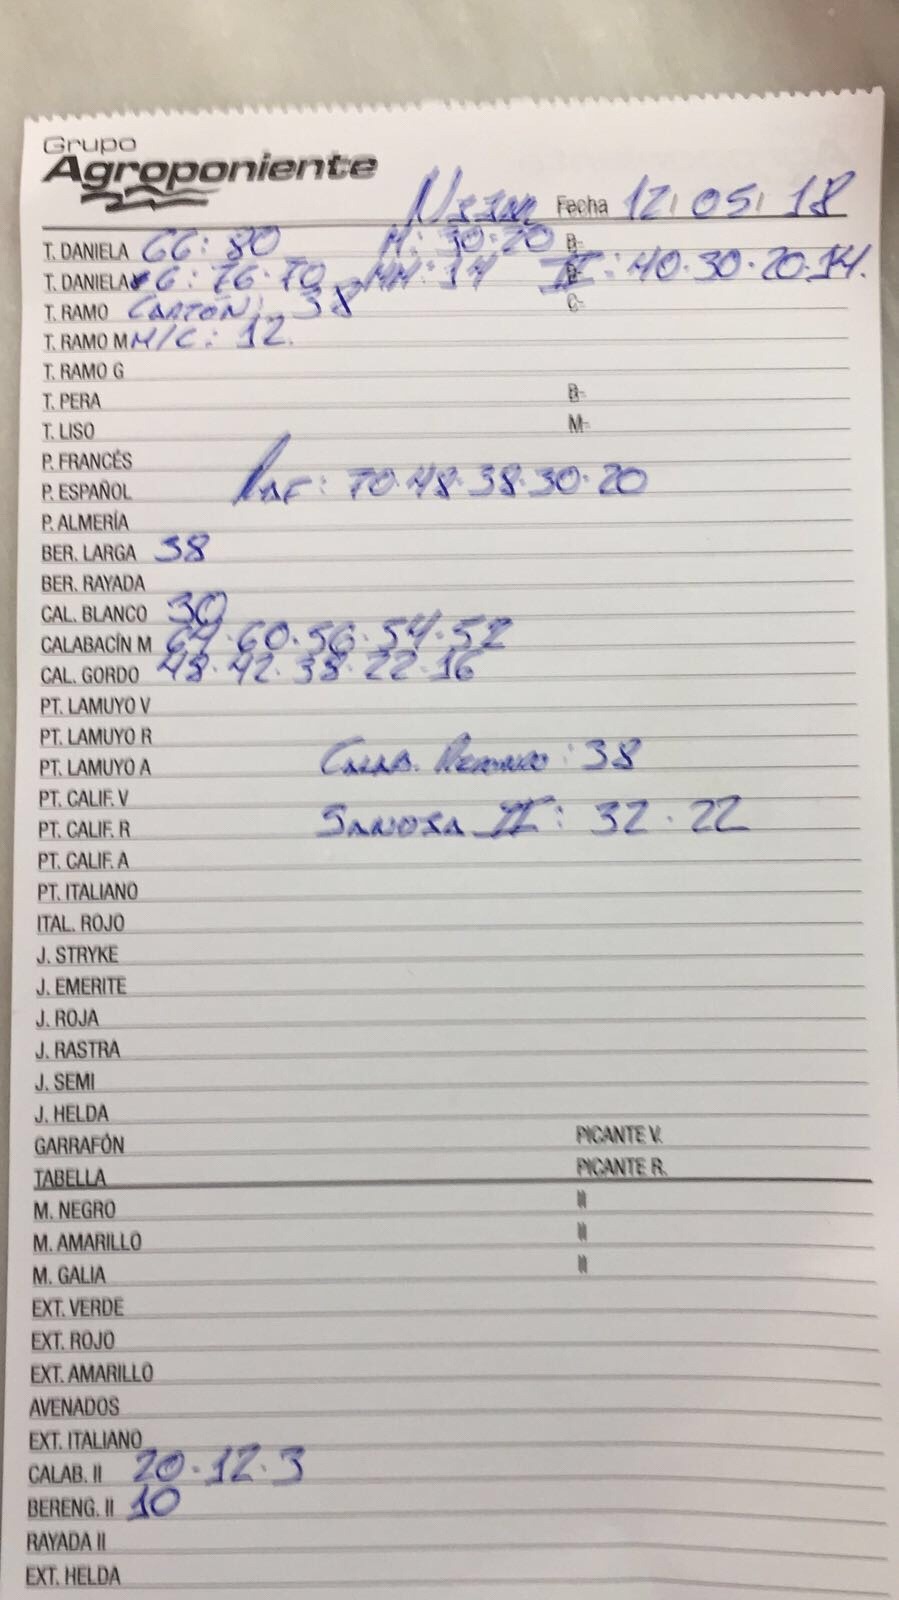 Grupo
Agroponiente
Fecha 12, 05, 18
T. DANIELA GG: 80 M: 30·20 B-
T. DANIELA G: 76·70 MM: 14 II: 40·30·20·14. B-
T. RAMO CARTÓN: 38 C-
T. RAMO M M/C: 12.
T. RAMO G
T. PERA B-
T. LISO M-
P. FRANCÉS
P. ESPAÑOL RAF: 70·48·38·30·20
P. ALMERÍA
BER. LARGA 38
BER. RAYADA
CAL. BLANCO 30
CALABACÍN M 64·60·56·54·52
CAL. GORDO 48·42·38·22·16
PT. LAMUYO V
PT. LAMUYO R
PT. LAMUYO A CALAB. REDONDO: 38
PT. CALIF. V
PT. CALIF. R SANOSA II: 32·22
PT. CALIF. A
PT. ITALIANO
ITAL. ROJO
J. STRYKE
J. EMERITE
J. ROJA
J. RASTRA
J. SEMI
J. HELDA
GARRAFÓN PICANTE V.
TABELLA PICANTE R.
M. NEGRO II
M. AMARILLO II
M. GALIA II
EXT. VERDE
EXT. ROJO
EXT. AMARILLO
AVENADOS
EXT. ITALIANO
CALAB. II 20·12·3
BERENG. II 10
RAYADA II
EXT. HELDA